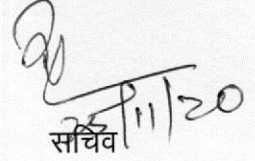 25/11/20
सचिव